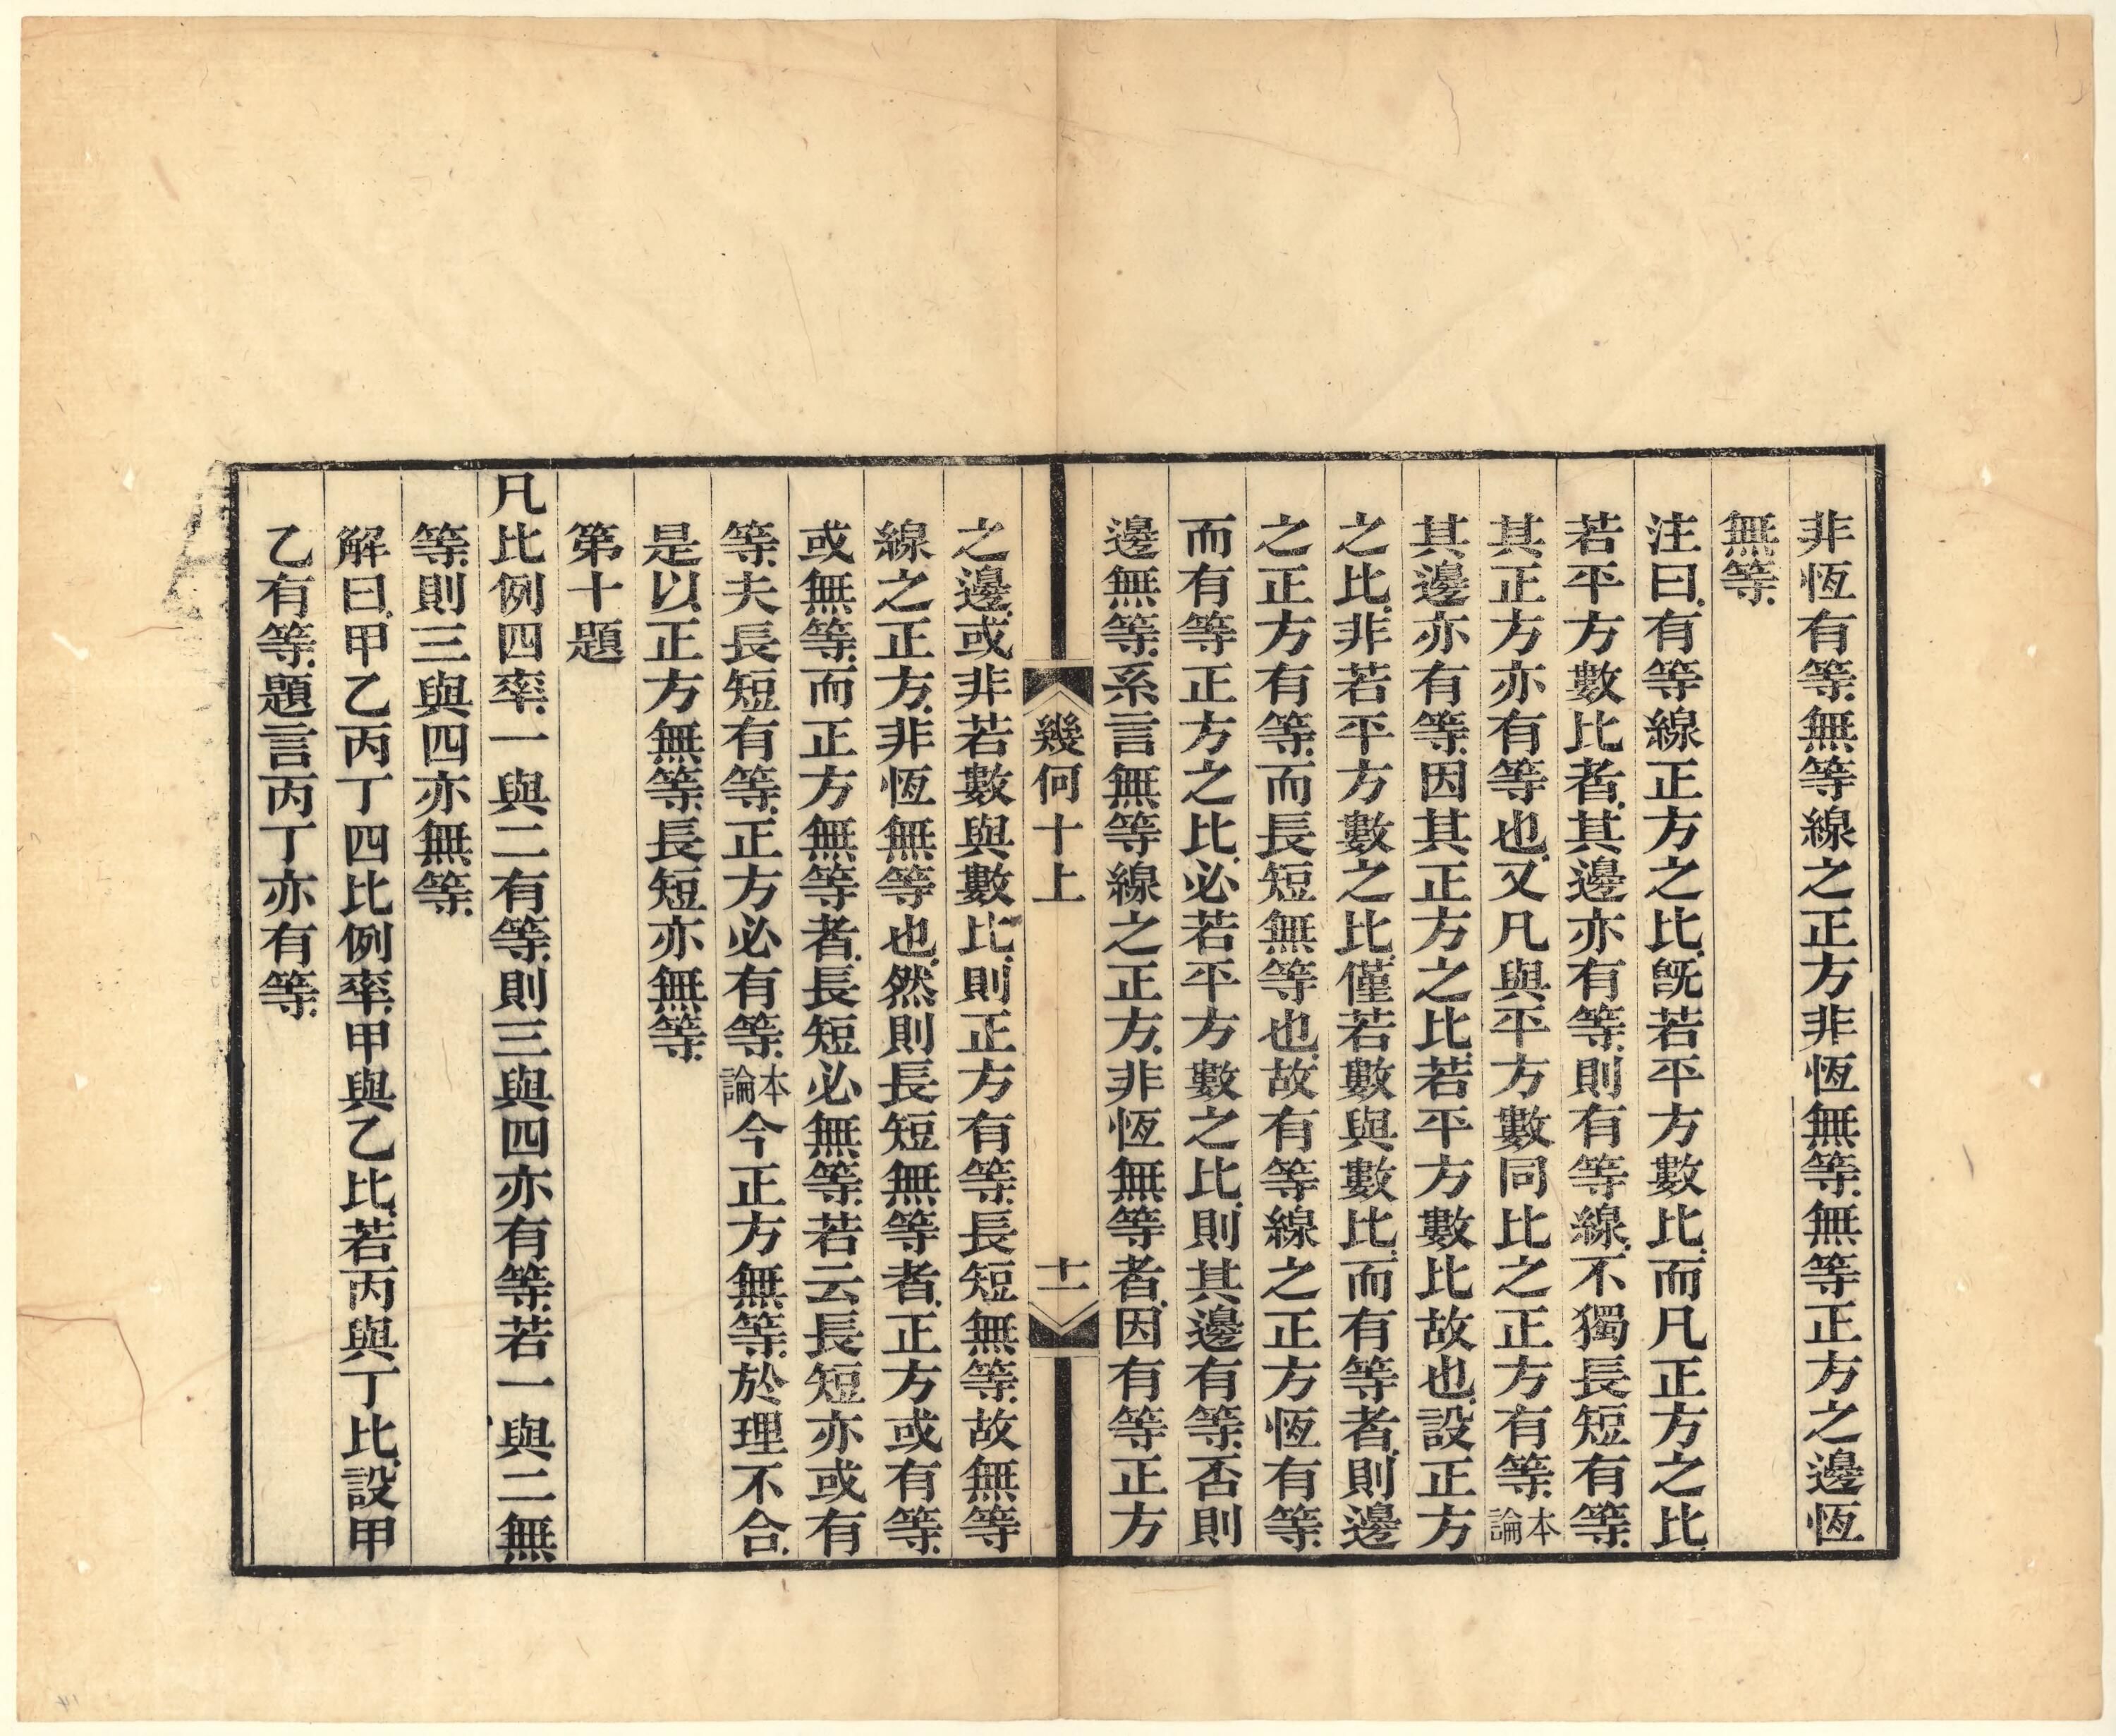 非恆有等無等線之正方非恆無等無等正方之邊恆
無等
注曰有等線正方之比旣若平方數比而凡正方之比
若平方數比者其邊亦有等則有等線不獨長短有等
其正方亦有等也又凡與平方數同比之正方有等本論
其邊亦有等因其正方之比若平方數比故也設正方
之比非若平方數之比僅若數與數比而有等者則邊
之正方有等而長短無等也故有等線之正方恆有等
而有等正方之比必若平方數之比則其邊有等否則
邊無等系言無等線之正方非恆無等者因有等正方
幾何十上
十一
之邊或非若數與數比則正方有等長短無等故無等
線之正方非恆無等也然則長短無等者正方或有等
或無等而正方無等者長短必無等若云長短亦或有
等夫長短有等正方必有等本論今正方無等於理不合
是以正方無等長短亦無等
第十題
凡比例四率一與二有等則三與四亦有等若一與二無
等則三與四亦無等
解曰甲乙丙丁四比例率甲與乙比若丙與丁比設甲
乙有等題言丙丁亦有等